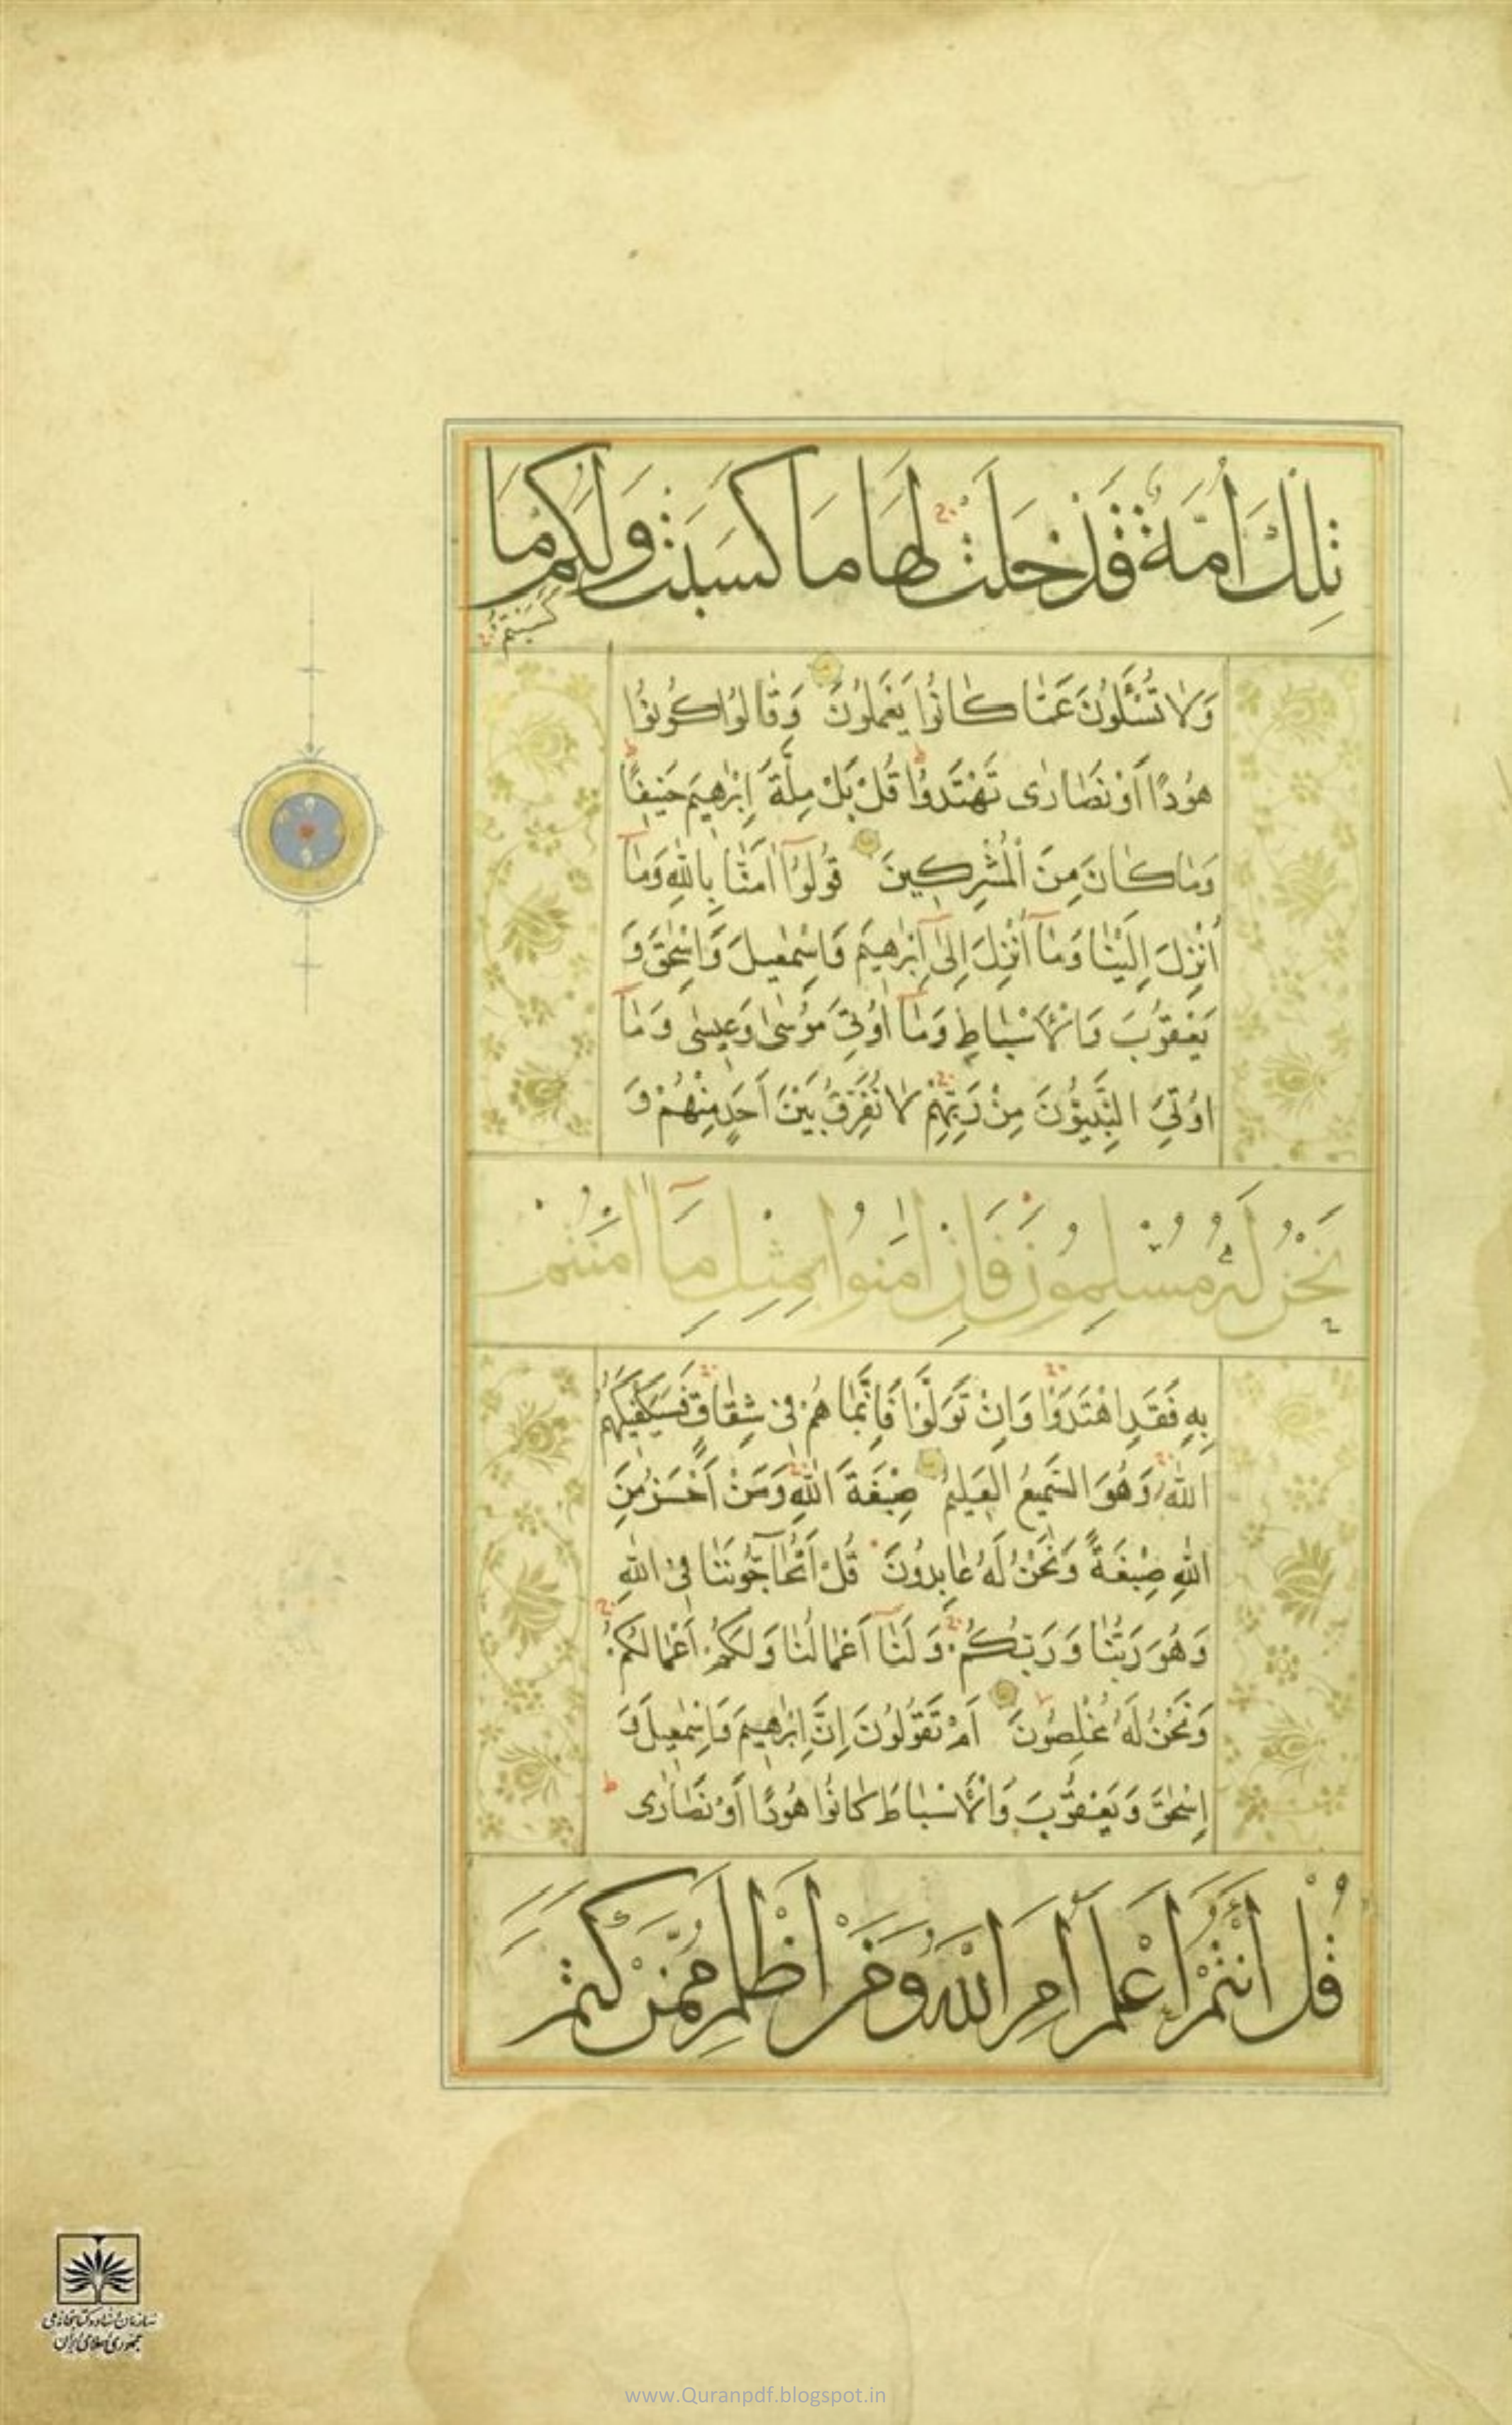 تِلْكَ أُمَّةٌ قَدْ خَلَتْ لَهَا مَا كَسَبَتْ وَلَكُمْ مَا
كَسَبْتُمْ
وَلَا تُسْـَٔلُونَ عَمَّا كَانُوا يَعْمَلُونَ وَقَالُوا كُونُوا
هُودًا أَوْ نَصَارَى تَهْتَدُوا قُلْ بَلْ مِلَّةَ إِبْرٰهِيمَ حَنِيفًا
وَمَا كَانَ مِنَ الْمُشْرِكِينَ قُولُوٓا اٰمَنَّا بِاللّٰهِ وَمَآ
أُنْزِلَ إِلَيْنَا وَمَآ أُنْزِلَ إِلَىٰٓ إِبْرٰهِيمَ وَإِسْمٰعِيلَ وَإِسْحٰقَ وَ
يَعْقُوبَ وَالْأَسْبَاطِ وَمَآ أُوتِيَ مُوسٰى وَعِيسٰى وَمَآ
اُوتِيَ النَّبِيُّونَ مِنْ رَبِّهِمْ لَا نُفَرِّقُ بَيْنَ أَحَدٍ مِنْهُمْ وَ
نَحْنُ لَهُ مُسْلِمُونَ فَإِنْ اٰمَنُوا بِمِثْلِ مَآ اٰمَنْتُمْ
بِهِ فَقَدِ اهْتَدَوْا وَإِنْ تَوَلَّوْا فَإِنَّمَا هُمْ فِي شِقَاقٍ فَسَيَكْفِيكَهُمُ
اللّٰهُ وَهُوَ السَّمِيعُ الْعَلِيمُ صِبْغَةَ اللّٰهِ وَمَنْ أَحْسَنُ مِنَ
اللّٰهِ صِبْغَةً وَنَحْنُ لَهُ عَابِدُونَ قُلْ أَتُحَآجُّونَنَا فِي اللّٰهِ
وَهُوَ رَبُّنَا وَرَبُّكُمْ وَلَنَآ أَعْمَالُنَا وَلَكُمْ أَعْمَالُكُمْ
وَنَحْنُ لَهُ مُخْلِصُونَ اَمْ تَقُولُونَ إِنَّ إِبْرٰهِيمَ وَإِسْمٰعِيلَ وَ
إِسْحٰقَ وَيَعْقُوبَ وَالْأَسْبَاطَ كَانُوا هُودًا أَوْ نَصَارَى
قُلْ أَأَنْتُمْ أَعْلَمُ أَمِ اللّٰهُ وَمَنْ أَظْلَمُ مِمَّنْ كَتَمَ
سازمان اسناد و کتابخانه ملی
جمهوری اسلامی ایران
www.Quranpdf.blogspot.in